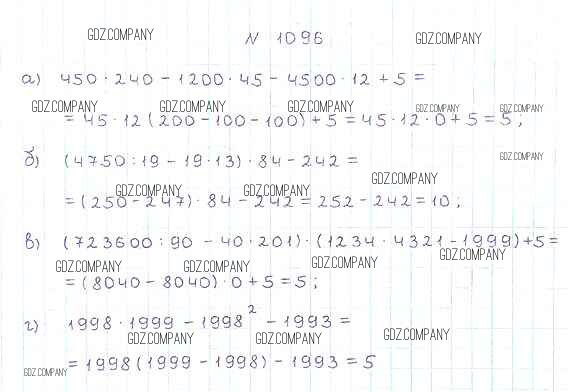 GDZ.COMPANY
N 1096
GDZ.COMPANY
а) 450 · 240 - 1200 · 45 - 4500 · 12 + 5 =
GDZ.COMPANY GDZ.COMPANY GDZ.COMPANY GDZ.COMPANY GDZ.COMPANY
= 45 · 12 (200 - 100 - 100) + 5 = 45 · 12 · 0 + 5 = 5 ;
б) (4750 : 19 - 19 · 13) · 84 - 242 =
GDZ.COMPANY
GDZ.COMPANY
GDZ.COMPANY GDZ.COMPANY
= (250 - 247) · 84 - 242 = 252 - 242 = 10 ;
в) (723600 : 90 - 40 · 201) · (1234 · 4321 - 1999) + 5 =
GDZ.COMPANY GDZ.COMPANY GDZ.COMPANY GDZ.COMPANY
= (8040 - 8040) · 0 + 5 = 5 ;
г) 1998 · 1999 - 1998² - 1993 =
GDZ.COMPANY GDZ.COMPANY GDZ.COMPANY
= 1998 (1999 - 1998) - 1993 = 5
GDZ.COMPANY